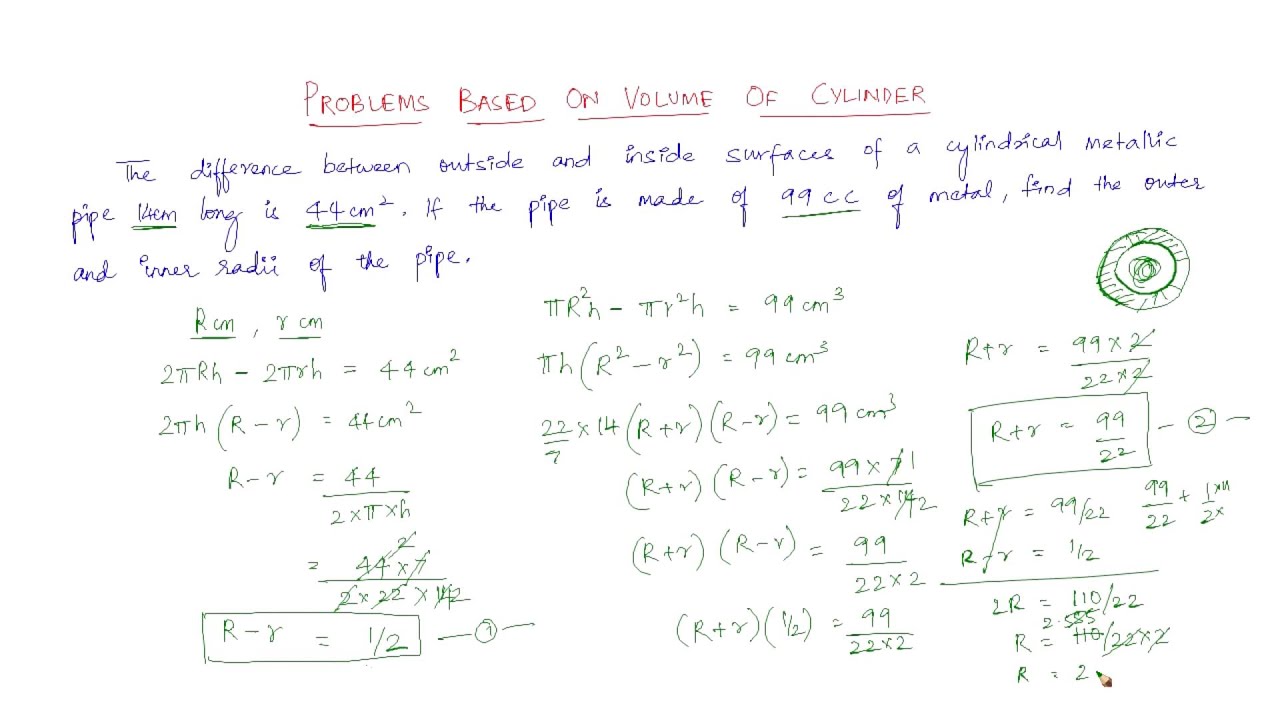 PROBLEMS BASED ON VOLUME OF CYLINDER
The difference between outside and inside surfaces of a cylindrical metallic
pipe 14cm long is 44cm². If the pipe is made of 99cc of metal, find the outer
and inner radii of the pipe.
R cm , r cm
2πRh - 2πrh = 44cm²
2πh (R - r) = 44cm²
R - r = 44/2×π×h
= 44×7/2×22×14 2 2
R - r = 1/2 - ① -
πR²h - πr²h = 99cm³
πh (R² - r²) = 99cm³
22/7 × 14 (R+r) (R-r) = 99cm³
(R+r) (R-r) = 99×7 1/22×14 2
(R+r) (R-r) = 99/22×2
(R+r) (1/2) = 99/22×2
R+r = 99×2/22×2
R+r = 99/22 - ② -
R+r = 99/22 99/22 + 1×11/2×
R-r = 1/2
2R = 110/22
2.555
R = 110/22×2
R = 2